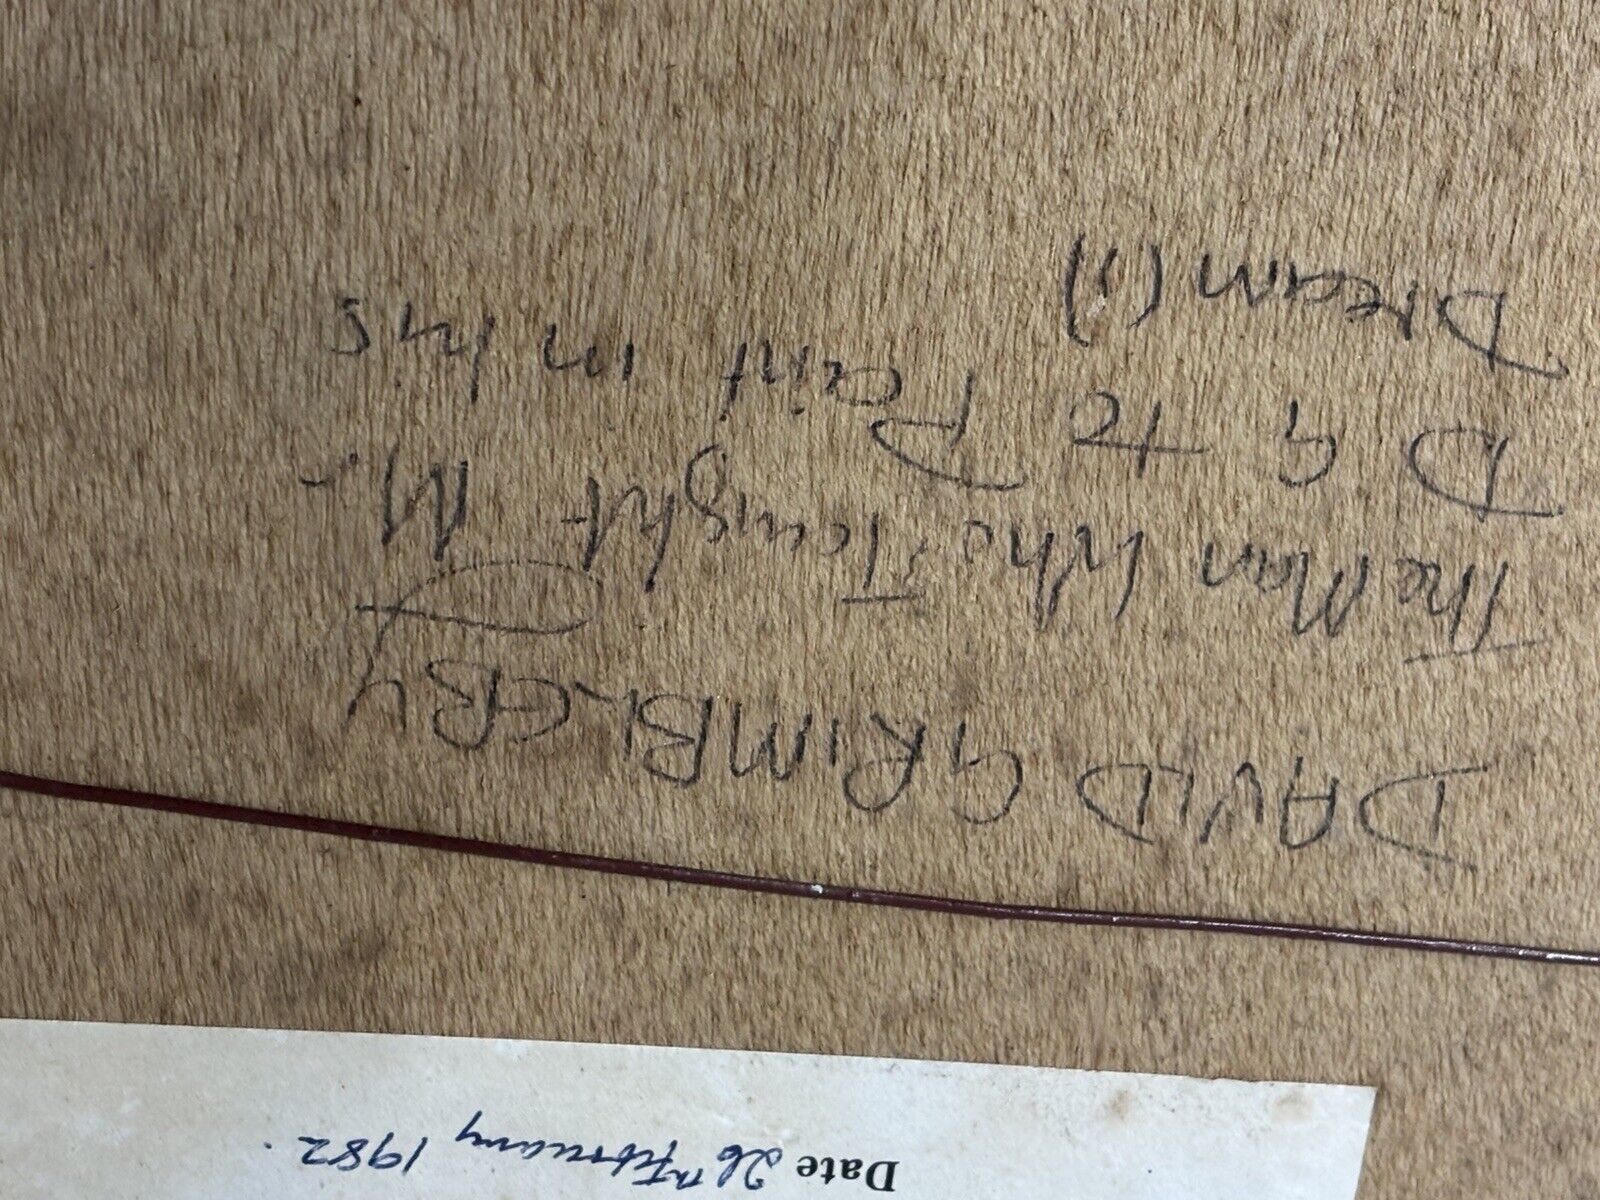 Date 26th February 1982.
DAVID GRIMBLEBY
The Man Who Taught Mr
D G to Paint in his
Dream(1)